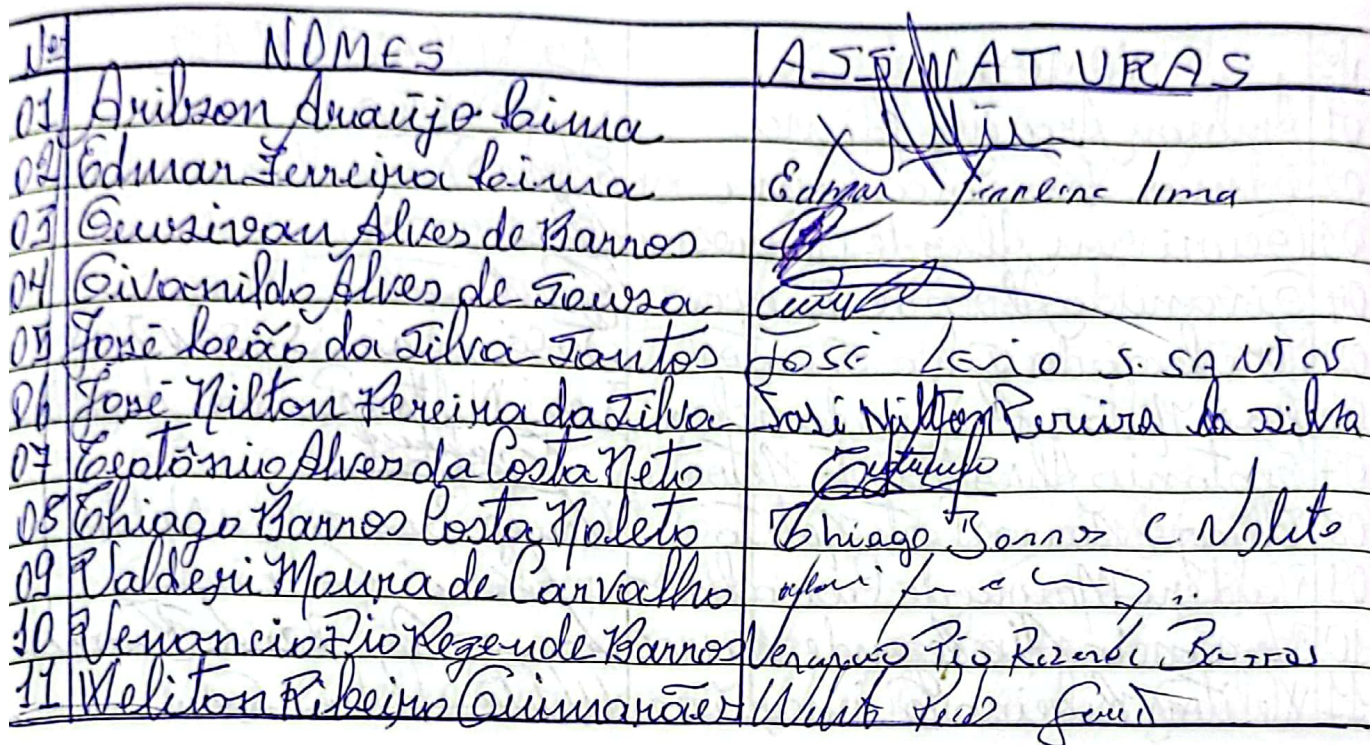 Nº NOMES ASSINATURAS
01 Arilson Araújo Lima
02 Edmar Ferreira Lima Edmar Ferreira lima
03 Alves de Barros
04 Givanildo Alves de Sousa
05 José Leão da Silva Santos José Leão S. SANTOS
06 José Nilton Pereira da Silva José Nilton Pereira da Silva
07 Teotônio Alves da Costa Neto
08 Thiago Barros Costa Noleto Thiago Barros C Noleto
09 Valderi Moura de Carvalho
10 Venancio Pio Rezende Barros Venancio Pio Rezende Barros
11 Weliton Ribeiro Guimarães